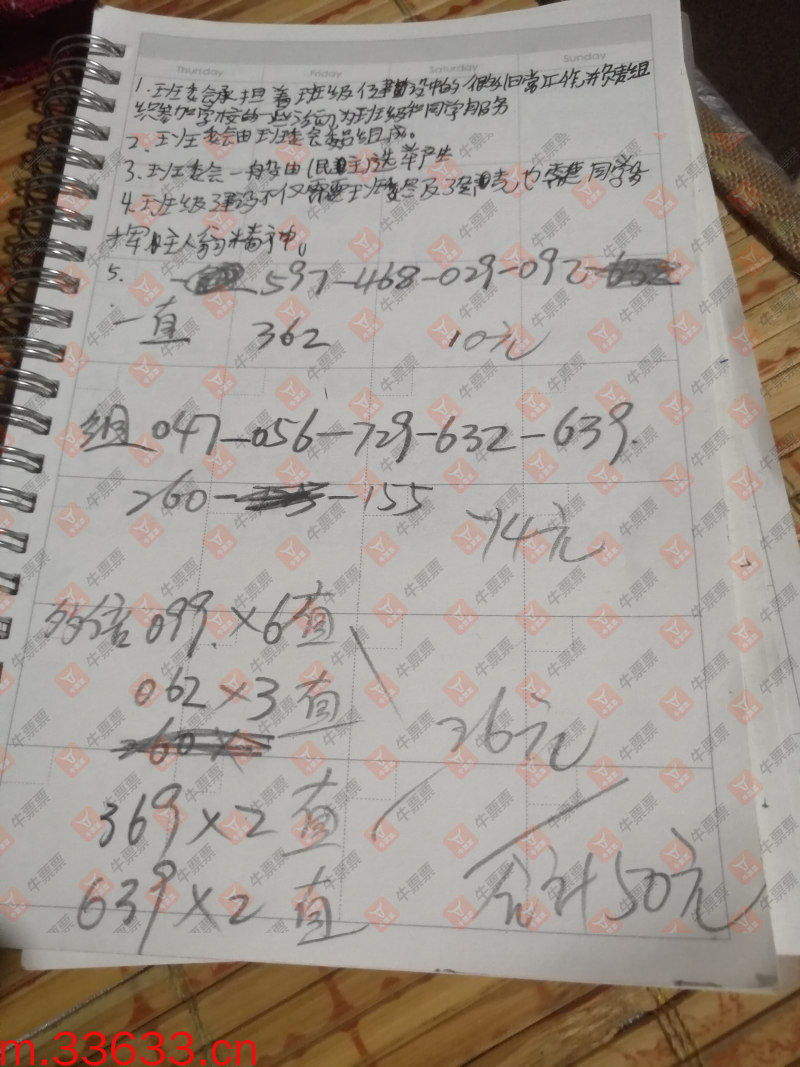 Thursday Friday Saturday Sunday
1. 班委会承担着班级任建设中的很多日常工作,并负责组
织参加学校的一些活动,为班级和同学服务
2. 班主委会由班委会委员组成。
3. 班委会一般由(民主)选举产生
4. 班级建设不仅需要班委会及
也需要同学发
挥主人翁精神。
5.
597-468-029-092
一直 362 10元
组 047-056-729-632-639.
260- -155
14元
多倍 099.×6直
062×3直
26元
369×2直
639×2直
合计50元
牛票票
m.33633.cn